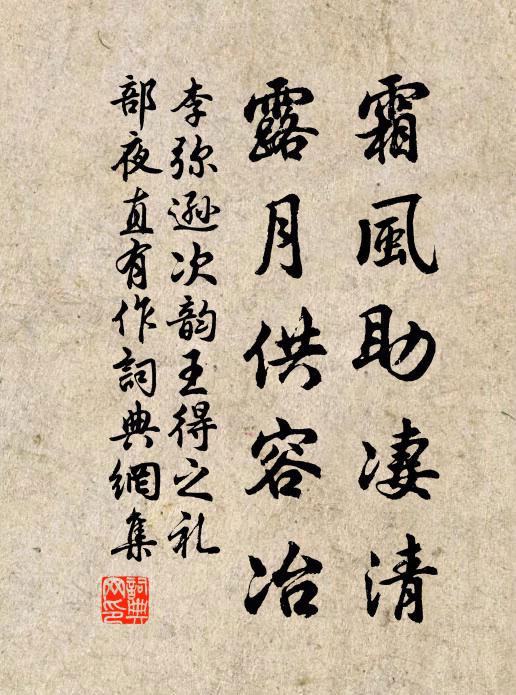 霜風助凄清
露月供容冶
李弥遜次韵王得之礼
部夜直有作詞典網集
詞典网印